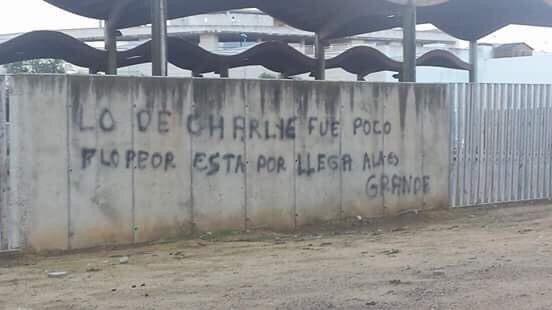 LO DE CHARLYE FUE POCO
FLO PEOR ESTA POR LLEGA ALA ES
GRANDE